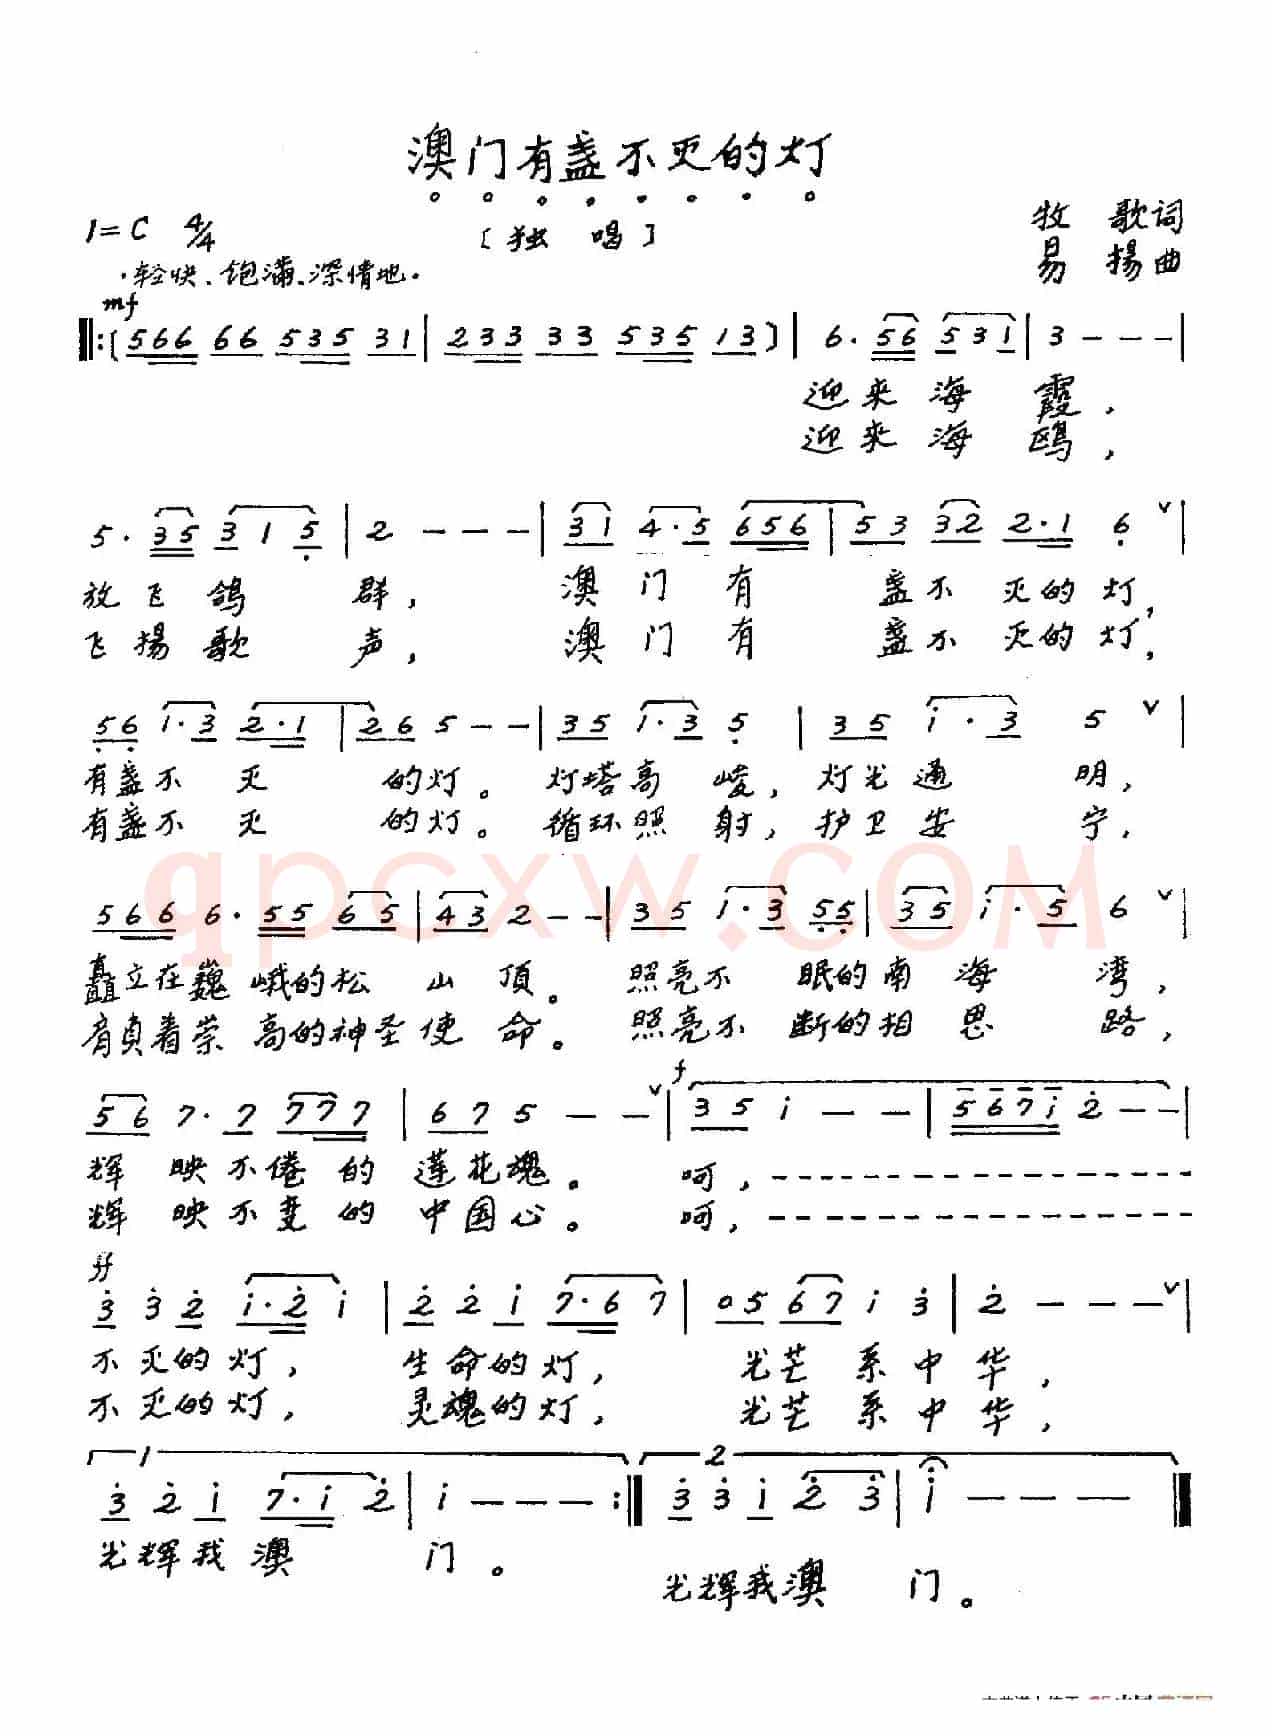 澳门有盏不灭的灯
1=C 4/4
〔独 唱〕
牧 歌词
易 揚曲
·轻快、饱满、深情地·
mf
‖:(566 66 535 31 | 233 33 535 13) | 6· 56 531 | 3 - - - |
迎来海 霞，
迎来海 鸥，
5· 35 3 1 5 | 2 - - - | 31 4·5 656 | 53 32 2·1 6 ∨ |
放飞鸽 群， 澳门有 盏不灭的灯，
飞揚歌 声， 澳门有 盏不灭的灯，
56 1·3 2·1 | 26 5 - - | 35 1·3 5 | 35 i·3 5 ∨ |
有盏不灭 的灯。灯塔高 峻，灯光通 明，
有盏不灭 的灯。循环照 射，护卫安 宁，
qpcxw.COM
566 6·55 65 | 43 2 - - | 35 1·3 55 | 35 i·5 6 ∨ |
矗立在巍 峨的松 山 顶。 照亮不 眠的南 海 湾，
肩负着崇 高的神圣使 命。 照亮不 断的相 思 路，
56 7·7 777 | 67 5 - - ∨ | 35 i - - | 567i 2 - - |
f
辉 映不倦 的 莲花魂。 呵，
辉 映不变 的 中国心。 呵，
ff
3 3 2 i·2 i | 2 2 i 7·6 7 | 05 67 i 3 | 2 - - - ∨ |
不灭的灯， 生命的灯， 光芒系中华，
不灭的灯， 灵魂的灯， 光芒系中华，
1 2
3 2 i 7·i 2 | i - - - :‖ 3 3 i 2 3 | i - - - ‖
光辉我澳 门。
光辉我澳 门。